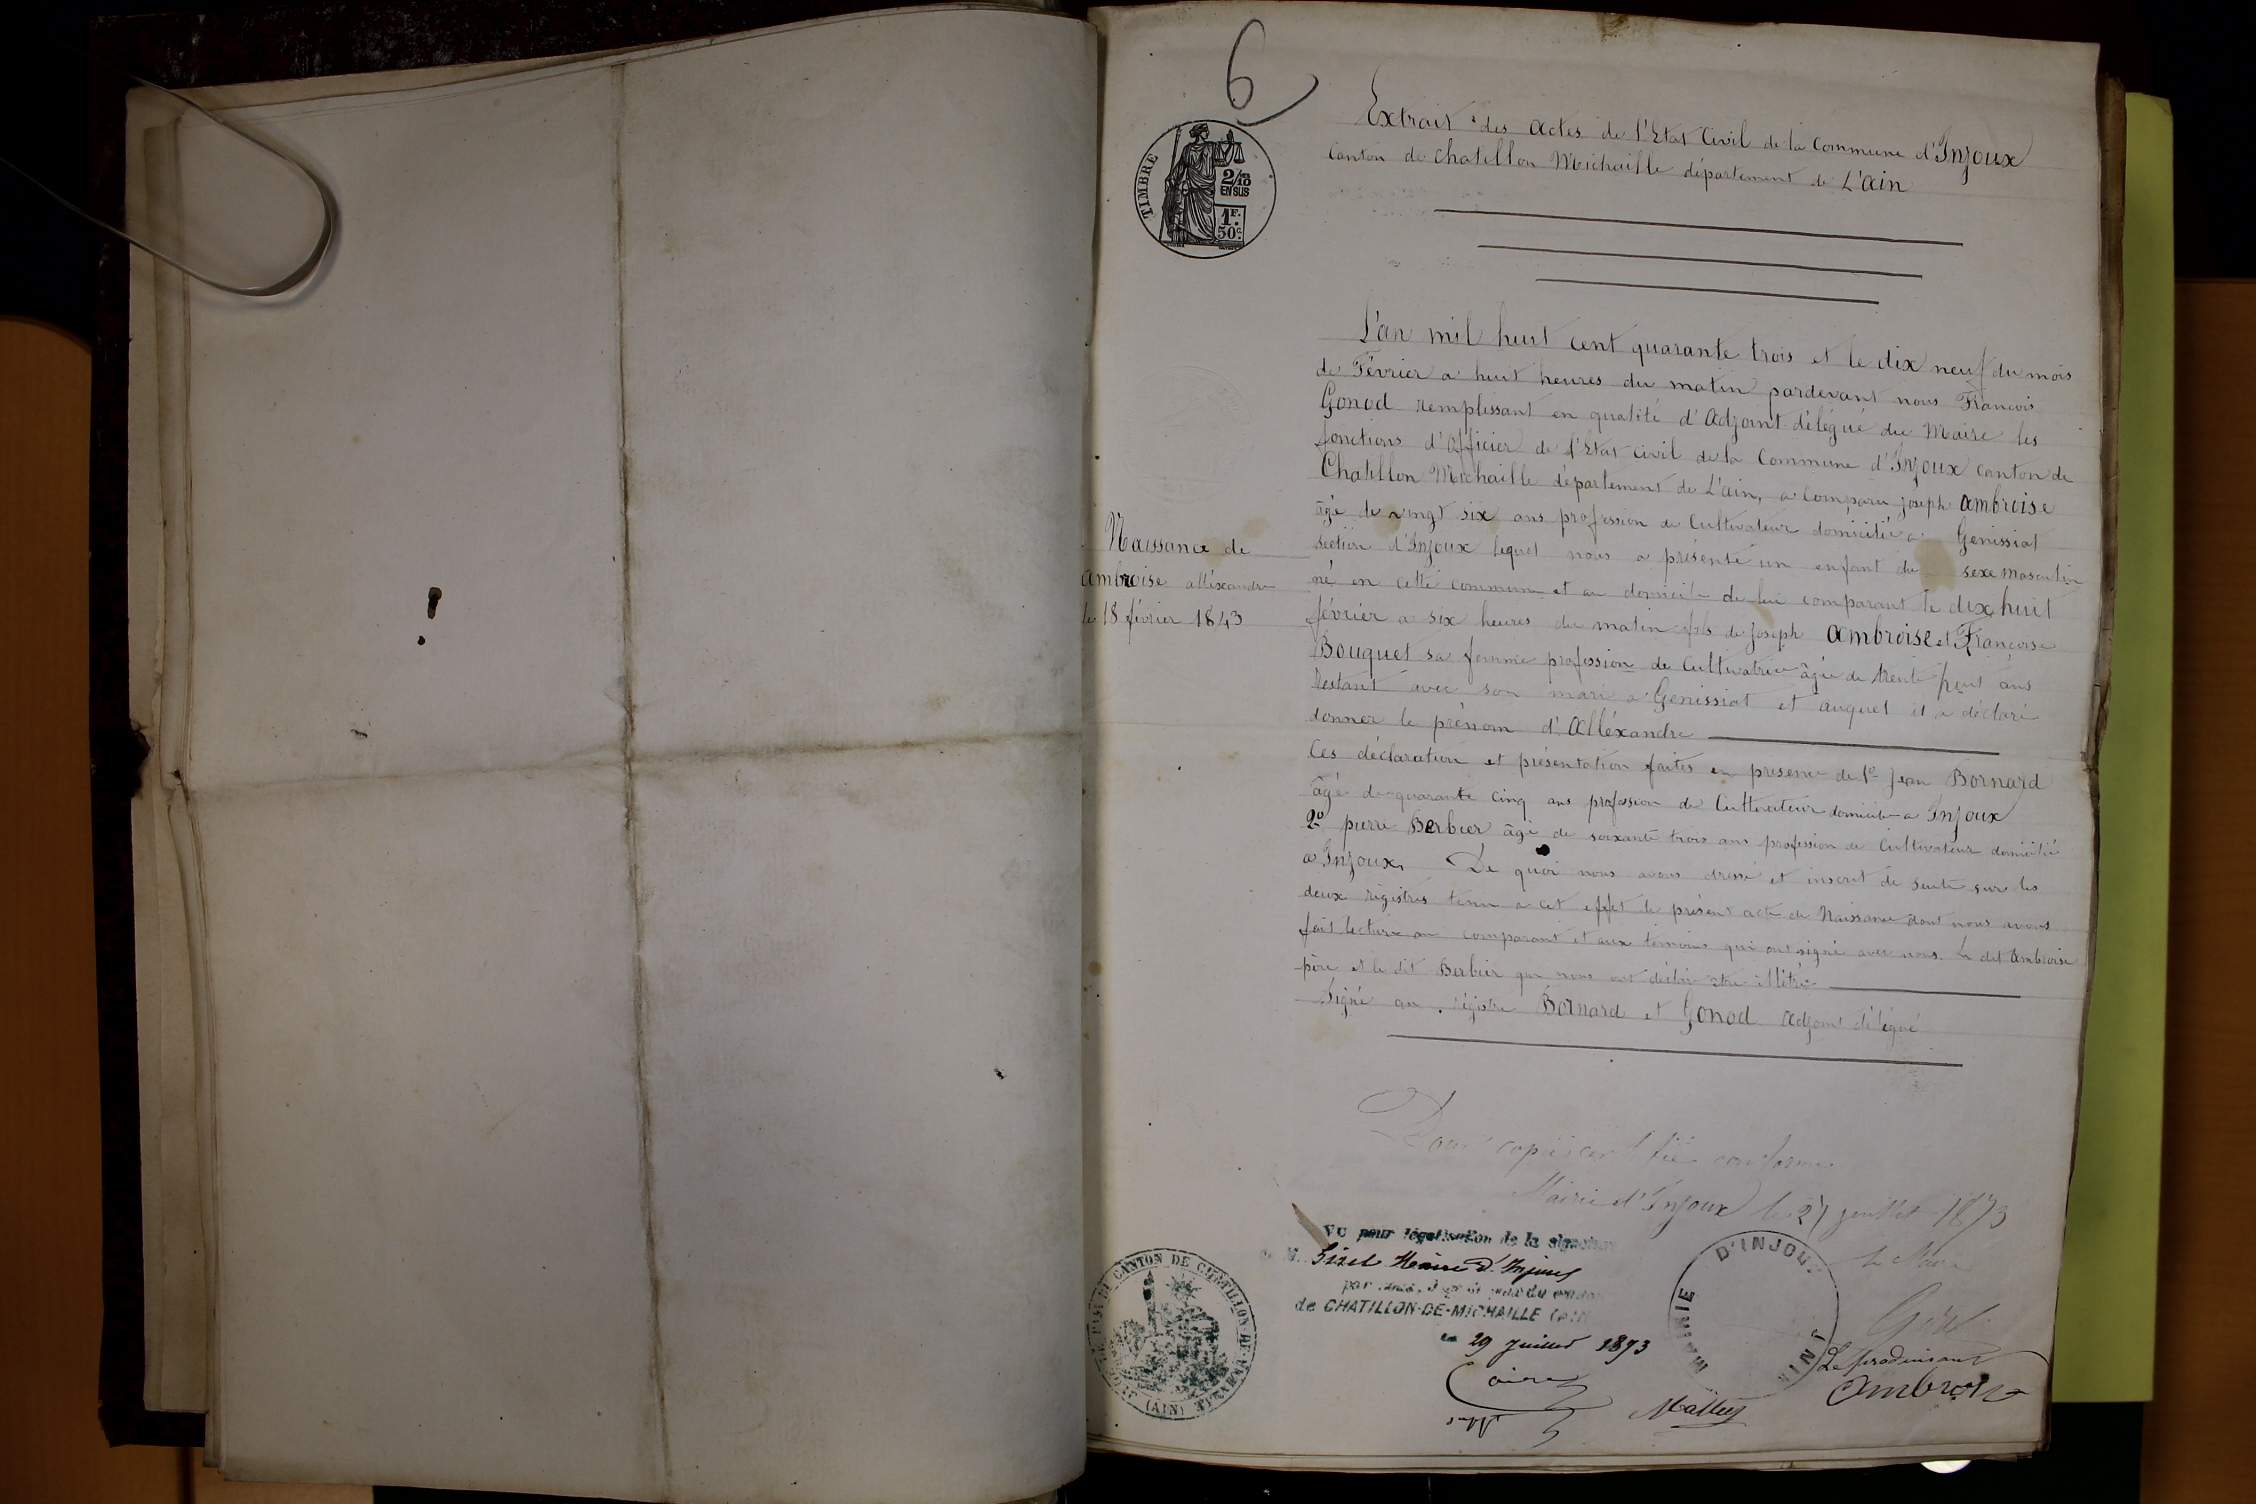 6
TIMBRE
2/10
EN SUS
1F.
50c.
Extrait des actes de l'Etat Civil de la Commune d'Injoux
Canton de Chatillon Michaille département de L'ain
L'an mil huit cent quarante trois et le dix neuf du mois
de Février a huit heures du matin pardevant nous Francois
Gonod remplissant en qualité d'Adjoint délégué du Maire les
fonctions d'officier de l'Etat civil de la Commune d'Injoux canton de
Chatillon Michaille département de L'ain, a Comparu joseph ambroise
âgé de vingt six ans profession de Cultivateur domicilié a Genissiat
section d'Injoux lequel nous a présenté un enfant du sexe masculin
né en cette commune et au domicile de lui comparant le dix huit
février a six heures du matin fils de joseph ambroise et Francoise
Bouquet sa femme profession de Cultivatrice âgée de trente huit ans
Restant avec son mari a Genissiat et auquel il a déclaré
donner le prénom d'Alléxandre
Ces déclaration et présentation faites en presence de 1o jean Bornard
âgé de quarante cinq ans profession de Cultivateur domicilié a Injoux
2o pierre Berbier âgé de soixante trois ans profession de Cultivateur domicilié
a Injoux. De quoi nous avons dressé et inscrit de suite sur les
deux régistres tenu a cet effet le présent acte de Naissance dont nous avons
fait lecture au comparant et aux témoins qui ont signé avec nous. le dit Ambroise
père et le dit Berbier qui nous ont déclaré etre illétré
Signé au régistre Bornard et Gonod adjoint délégué
Naissance de
ambroise alléxandre
le 18 février 1843
Pour copie certifié conforme
Mairie d'Injoux le 27 juillet 1873
Le Maire
Vu pour légalisation de la signature
M. Girel Maire d'Injoux
de CHATILLON-DE-MICHAILLE (AIN
le 29 juillet 1873
MAIRIE D'INJOUX
AIN
CANTON DE CHATILLON-DE-MICHAILLE
(AIN)
Ambroise